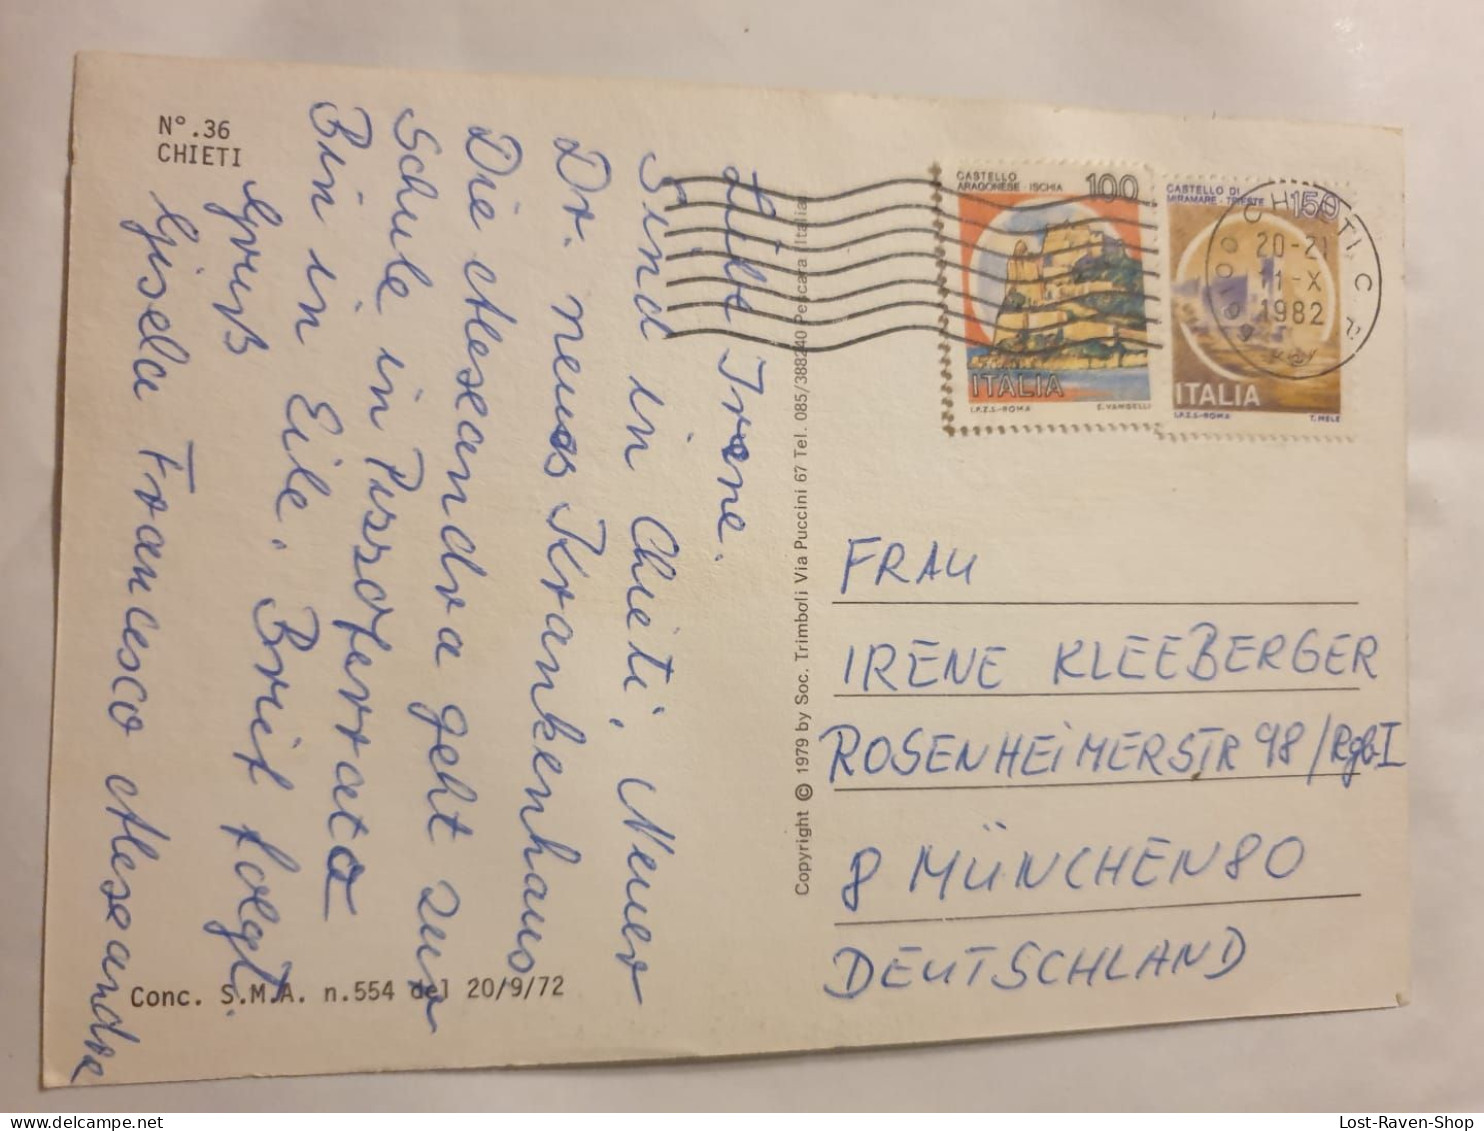 N°.36
CHIETI
Irene.
Sind in Chieti, Neuer
Dr. neues Krankenhaus
Die Alescandra geht zur
Schule in Pizzoferrato
Bin in Eile. Brief folgt.
Gruß
Gisela Francesco Alescandra
Conc. S.M.A. n.554 del 20/9/72
Copyright © 1979 by Soc. Trimboli Via Puccini 67 Tel. 085/388240 Pescara (Italia)
CASTELLO
ARAGONESE - ISCHIA 100
ITALIA
I.P.Z.S.-ROMA E. VANGELLI
CASTELLO DI
MIRAMARE - TRIESTE 150
ITALIA
I.P.Z.S.-ROMA T. MELE
CHIETI C
20-21
11-X
1982
FRAU
IRENE KLEEBERGER
ROSENHEIMERSTR 98/RgbI
8 MÜNCHEN 80
DEUTSCHLAND
Lost-Raven-Shop